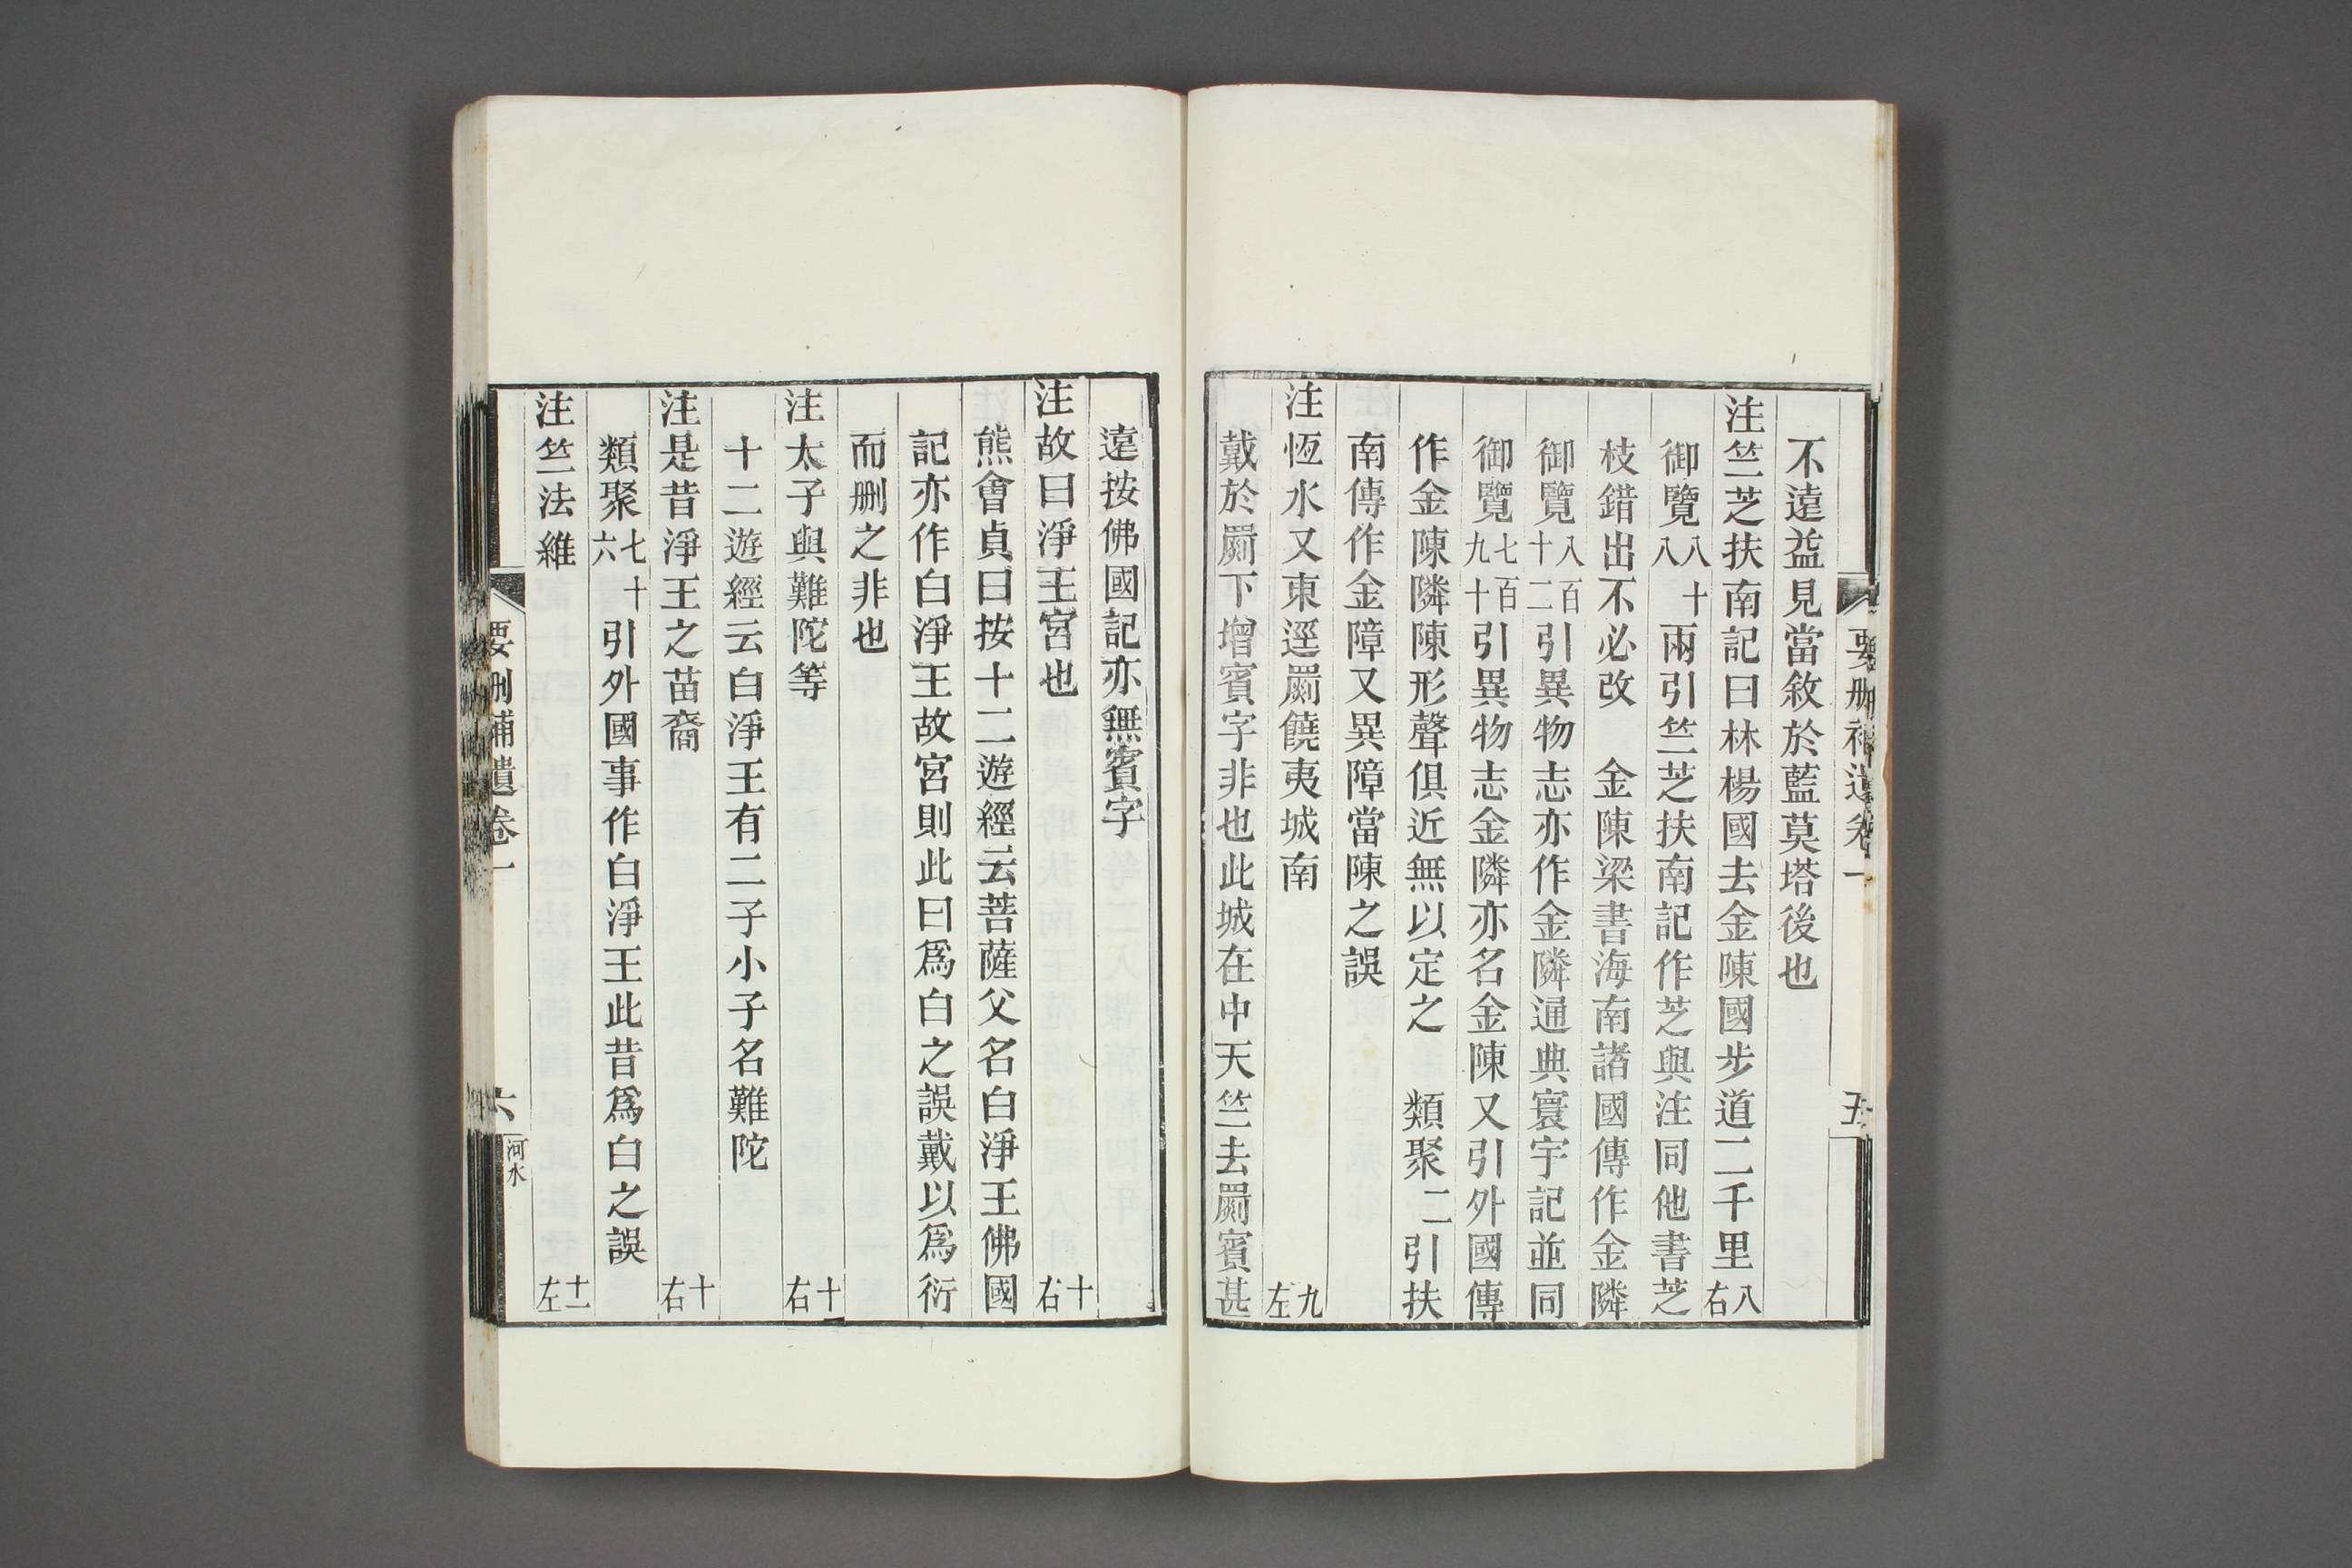 要刪補遺卷一
五
不遠益見當敘於藍莫塔後也
注竺芝扶南記曰林楊國去金陳國步道二千里八右
御覽八十八兩引竺芝扶南記作芝與注同他書芝
枝錯出不必改　金陳梁書海南諸國傳作金隣
御覽八百十二引異物志亦作金隣通典寰宇記並同
御覽七百九十引異物志金隣亦名金陳又引外國傳
作金陳隣陳形聲俱近無以定之　類聚二引扶
南傳作金障又異障當陳之誤
注恆水又東逕罽饒夷城南九左
戴於罽下增賓字非也此城在中天竺去罽賓甚
遠按佛國記亦無賓字
注故曰淨王宮也十右
熊會貞曰按十二遊經云菩薩父名白淨王佛國
記亦作白淨王故宮則此曰爲白之誤戴以爲衍
而刪之非也
注太子與難陀等十右
十二遊經云白淨王有二子小子名難陀
注是昔淨王之苗裔十右
類聚七十六引外國事作白淨王此昔爲白之誤
注竺法維十一左
要刪補遺卷一
六
河水